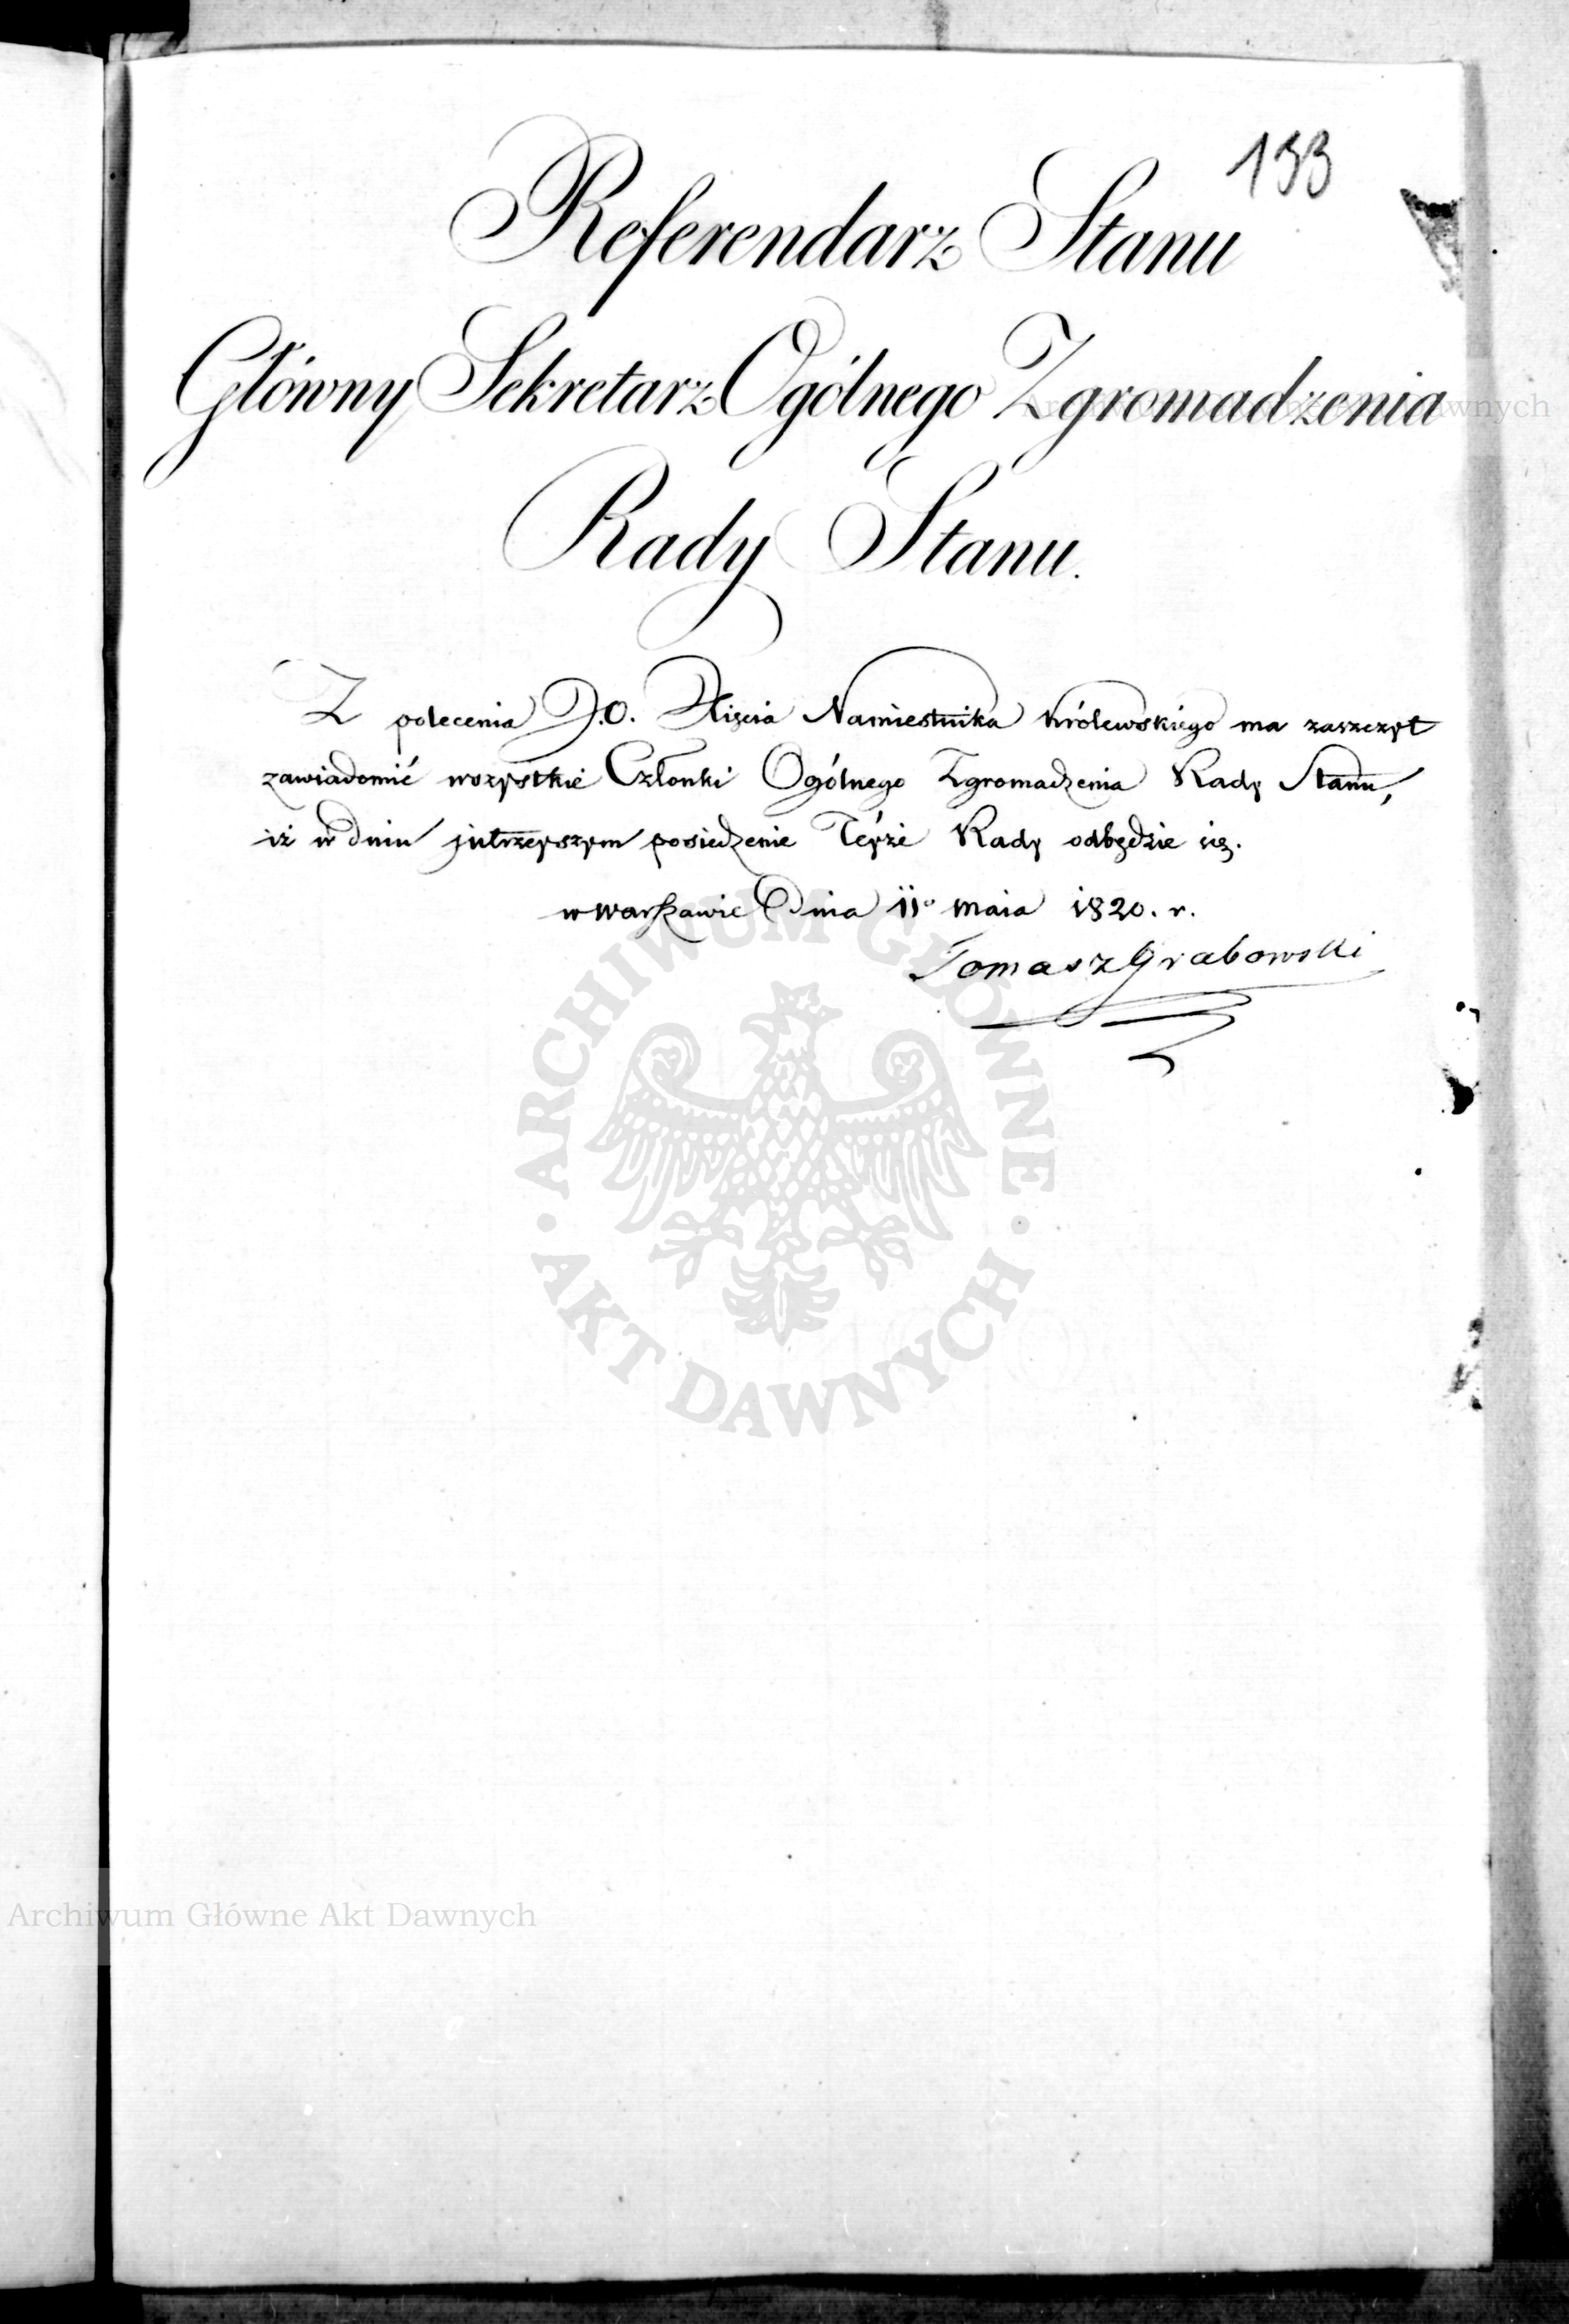 133
Referendarz Stanu
Główny Sekretarz Ogólnego Zgromadzenia
Rady Stanu.
Z polecenia J.O. Xięcia Namiestnika Królewskiego ma zaszczyt
zawiadomić wszystkie Członki Ogólnego Zgromadzenia Rady Stanu,
iż w dniu jutrzeyszym posiedzenie Teyże Rady odbędzie się.
w Warszawie Dnia 11º Maia 1820. r.
Tomasz Grabowski
ARCHIWUM GŁÓWNE · AKT DAWNYCH ·
Archiwum Główne Akt Dawnych
Archiwum Główne Akt Dawnych